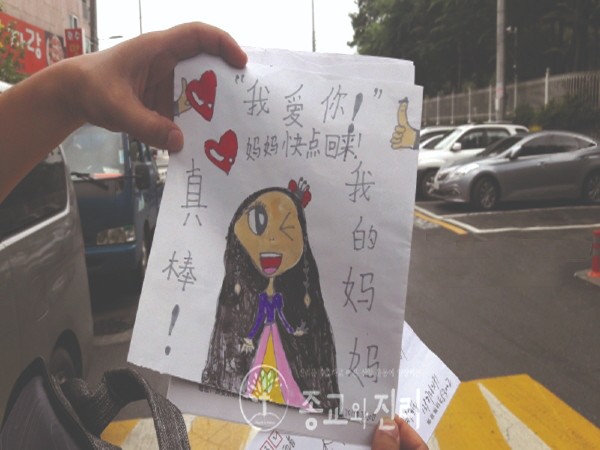 "我爱你!"
妈妈快点回来!
我的妈妈
真棒!
종교와진리